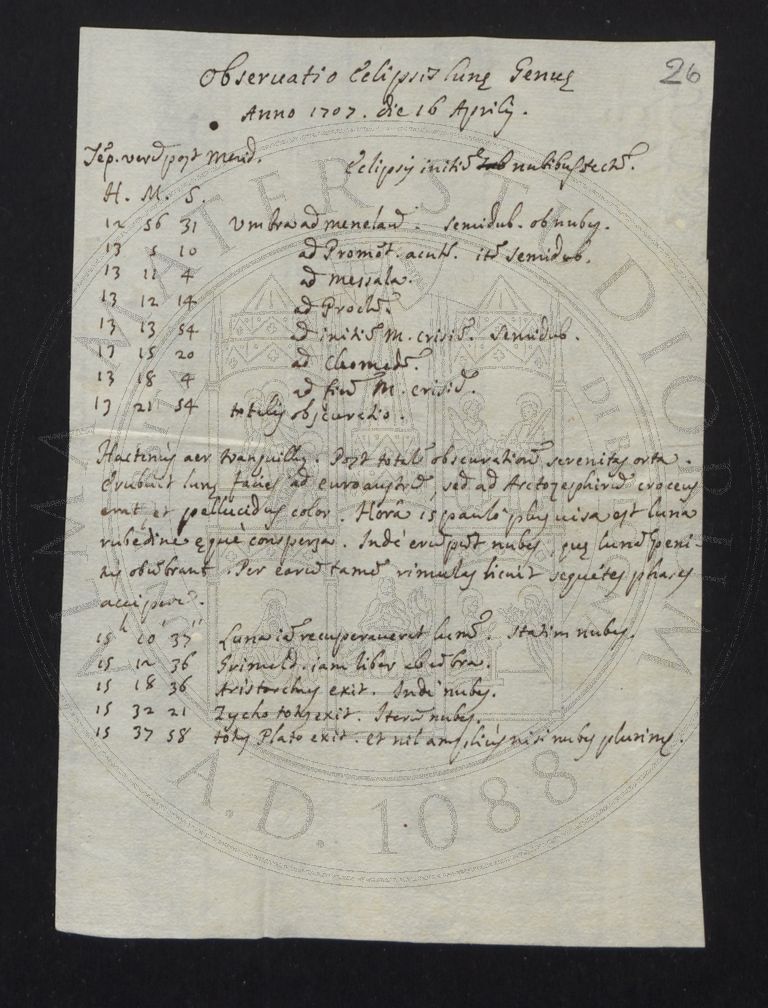 Observatio Eclipsis lunę Genuę
26
Anno 1707. die 16 Aprilis.
Tẽp. verũ post merid. Eclipsis initiũ nubibus tectũ.
H. M. S.
12 56 31 Vmbra ad menelaũ. semidub. ob nubes.
13 5 10 ad Promõt. acutũ. itẽ semidub.
13 11 4 ad Messala.
13 12 14 ad Proclũ.
13 13 54 ad initiũ M. crisiũ. semidub.
17 15 20 ad Cleomedẽ.
13 18 4 ad finẽ M. crisiũ.
13 21 54 totalis obscuratio.
Hactenus aer tranquillus. Post totalẽ obscurationẽ serenitas orta.
Erubuit lunę facies ad euroaustrũ, sed ad Arctozephirũ croceus
erat et pellucidus color. Horâ 15 paulò plus visa est luna
rubedine ęquè conspersa. Indè nubes, quę lunã peni-
tus obũbrant. Per earũ tamẽ rimulas licuit seguẽtes phases
accipere.
15h 10' 37'' Luna iã recuperaverat lumẽ. Statim nubes.
15 12 36 Grimald. iam liber ab ũbra.
15 18 36 Aristarchus exit. Indè nubes.
15 32 21 Tycho totus exit. Iterũ nubes.
15 37 58 totus Plato exit. et nil ampliùs nisi nubes plurimę.
ALMA MATER STUDIORUM
A.D. 1088